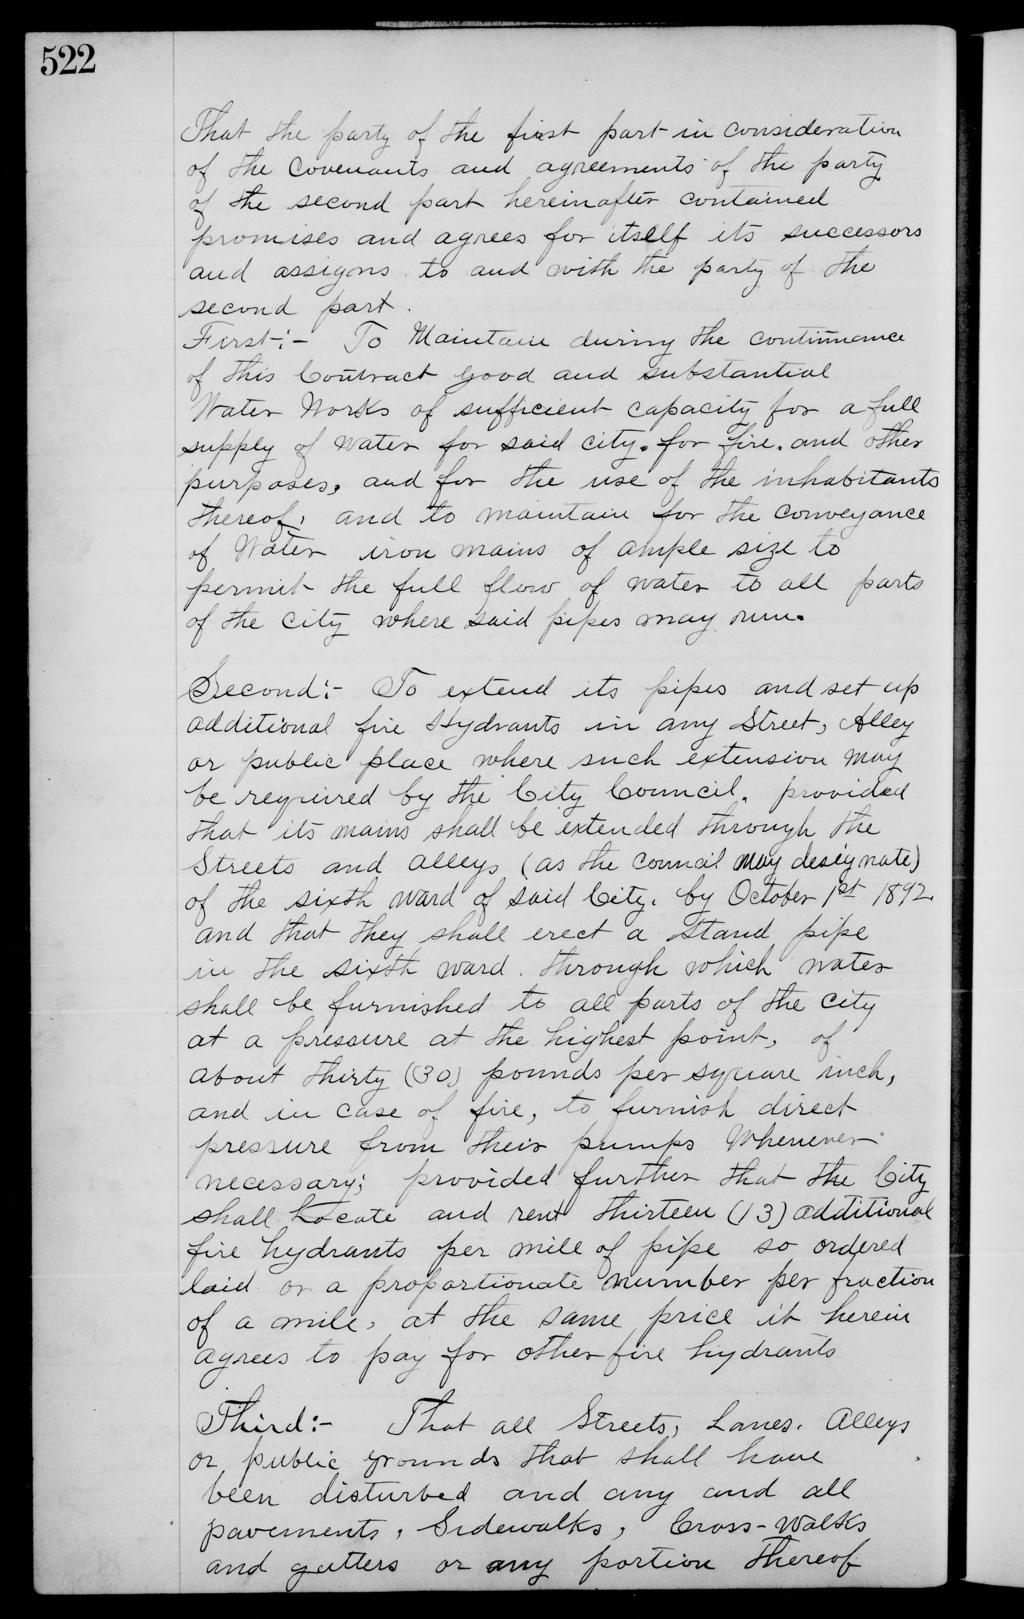 522
That the party of the first part in consideration
of the Covenants and agreements of the party
of the second part hereinafter contained
promises and agrees for itself its successors
and assigns to and with the party of the
second part.
First:- To Maintain during the continuance
of this Contract good and substantial
Water Works of sufficient capacity for a full
supply of water for said city. for fire. and other
purposes, and for the use of the inhabitants
thereof, and to maintain for the conveyance
of Water iron mains of ample size to
permit the full flow of water to all parts
of the city where said pipes may run.
Second:- To extend its pipes and set up
additional fire Hydrants in any Street, Alley
or public place where such extension may
be required by the City Council. provided
that its mains shall be extended through the
Streets and alleys (as the council may designate)
of the sixth ward of said City. by October 1st 1892.
and that they shall erect a Stand pipe
in the sixth ward. through which water
shall be furnished to all parts of the city
at a pressure at the highest point, of
about thirty (30) pounds per square inch,
and in case of fire, to furnish direct
pressure from their pumps Whenever
necessary; provided further that the City
shall Locate and rent thirteen (13) additional
fire hydrants per mile of pipe so ordered
laid or a proportionate number per fraction
of a mile, at the same price it herein
agrees to pay for other fire hydrants
Third:- That all Streets, Lanes. Alleys
or public grounds that shall have
been disturbed and any and all
pavements, Sidewalks, Cross-Walks
and gutters or any portion thereof